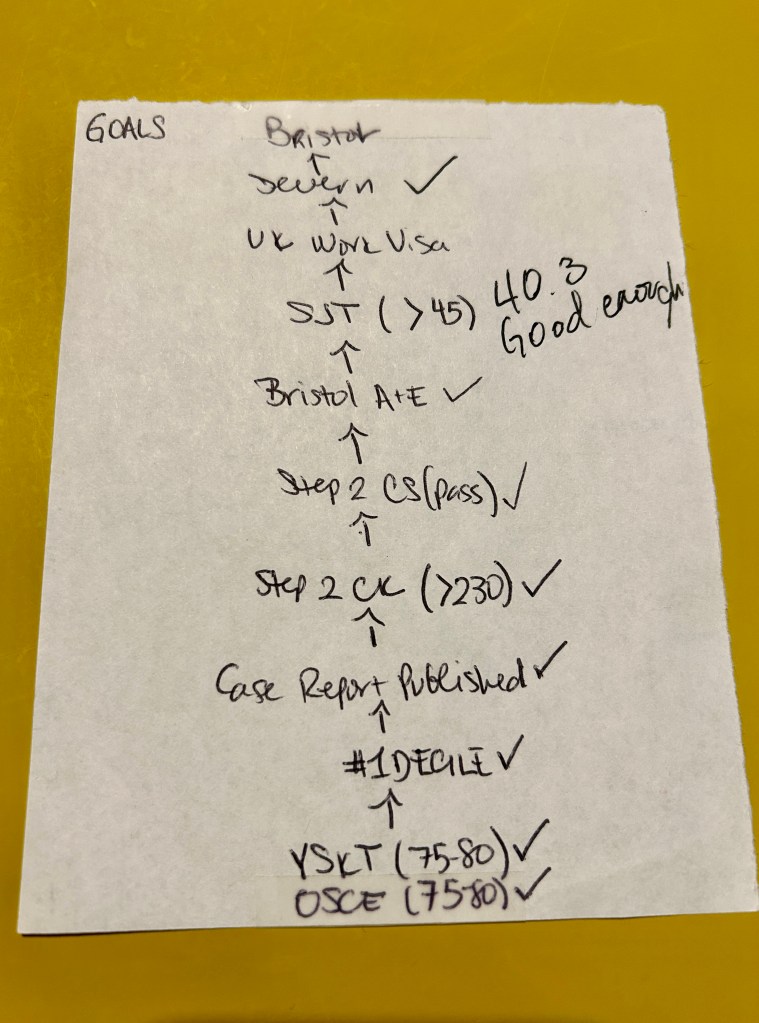 GOALS
Bristol
↑
Severn ✓
↑
UK Work Visa
↑
SJT (>45) 40.3
Good enough
↑
Bristol A+E ✓
↑
Step 2 CS (pass) ✓
↑
Step 2 CK (>230) ✓
↑
Case Report Published ✓
↑
#1 DECILE ✓
↑
YSKT (75-80) ✓
OSCE (75-80) ✓